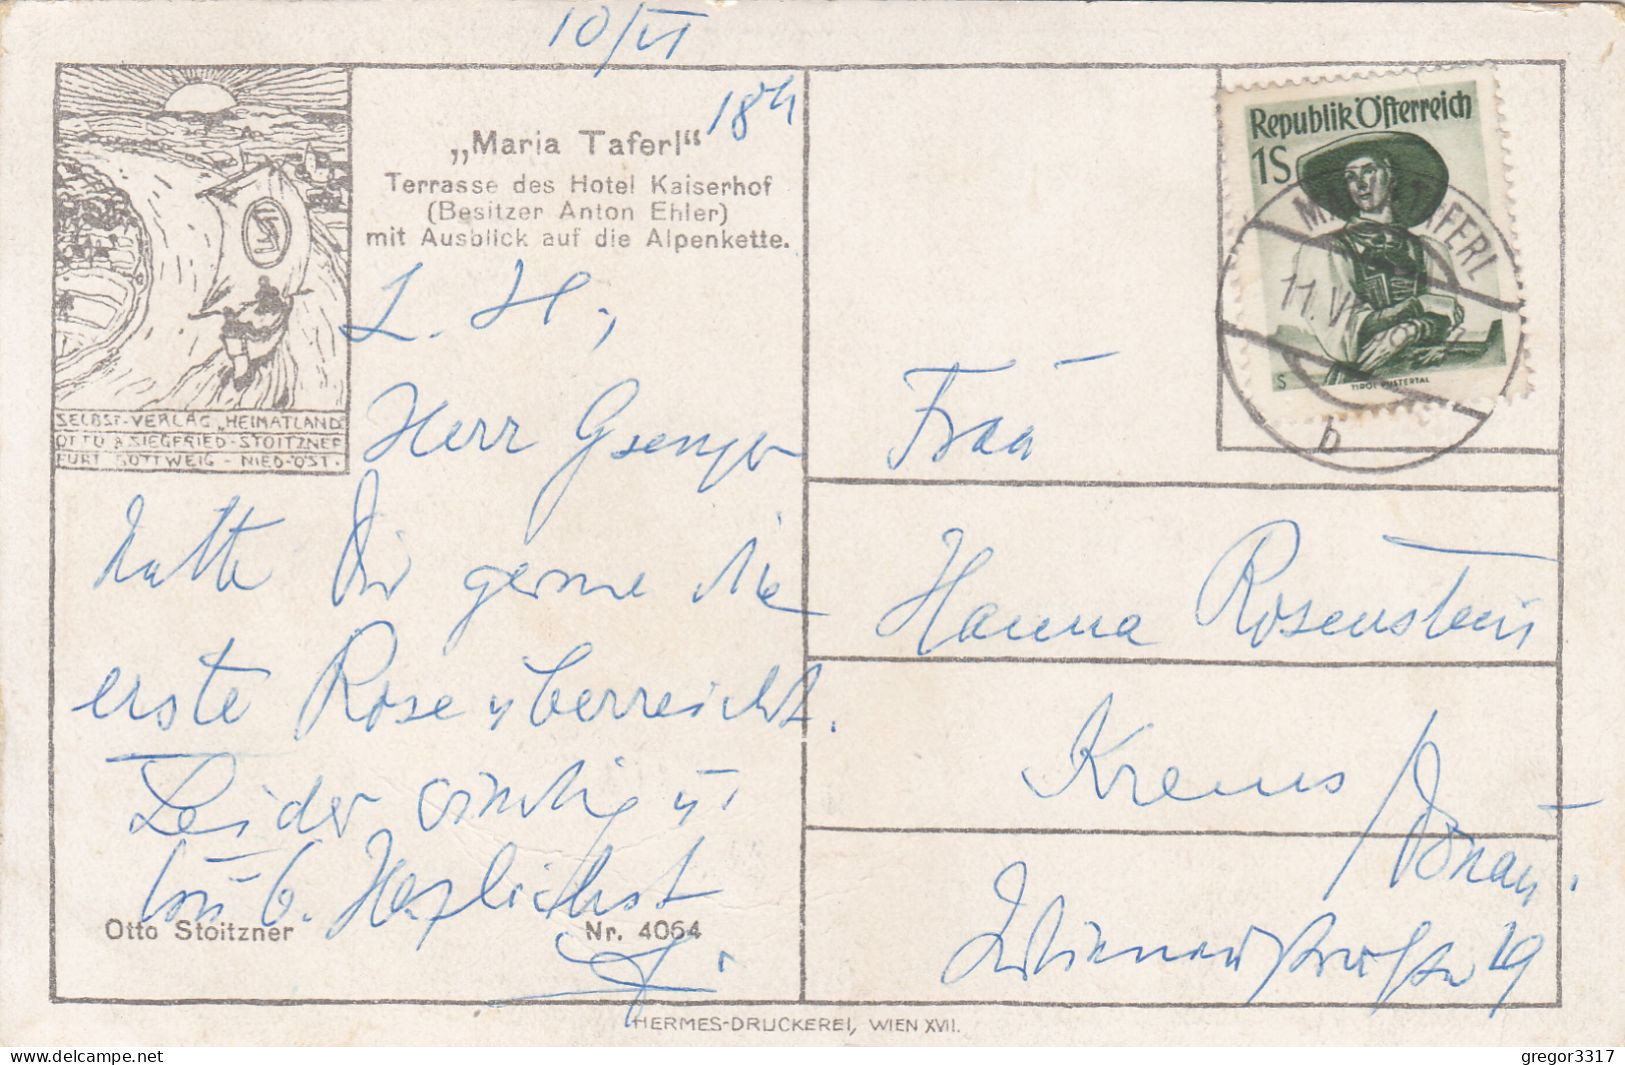 10/VI
18h
„Maria Taferl“
Terrasse des Hotel Kaiserhof
(Besitzer Anton Ehler)
mit Ausblick auf die Alpenkette.
SELBST-VERLAG „HEIMATLAND“
OTTO & SIEGFRIED-STOITZNER
FURT GÖTTWEIG - NIED-ÖST.
L. H.,
Herr Gsenger
hatte Dir gerne die
erste Rose überreicht.
Leider windig u.
b. Herzlichst
Otto Stoitzner
Nr. 4064
HERMES-DRUCKEREI, WIEN XVII.
Republik Österreich
1S
TIROL PUSTERTAL
S
TAFERL
11.V
b
Frau
Hanna Rosenstein
Krems / Donau
19
gregor3317